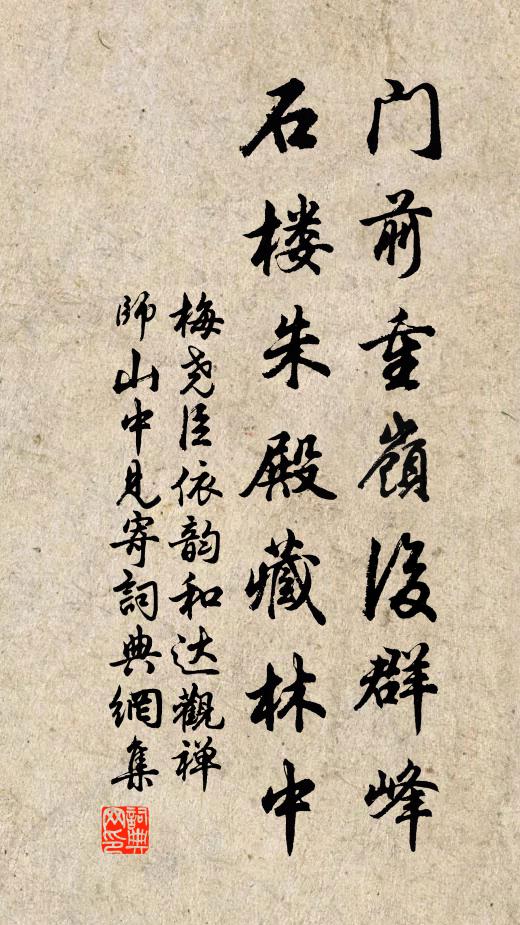 门前重嶺後群峰
石楼朱殿藏林中
梅尧臣依韵和达觀禅
師山中見寄詞典網集
詞典网印